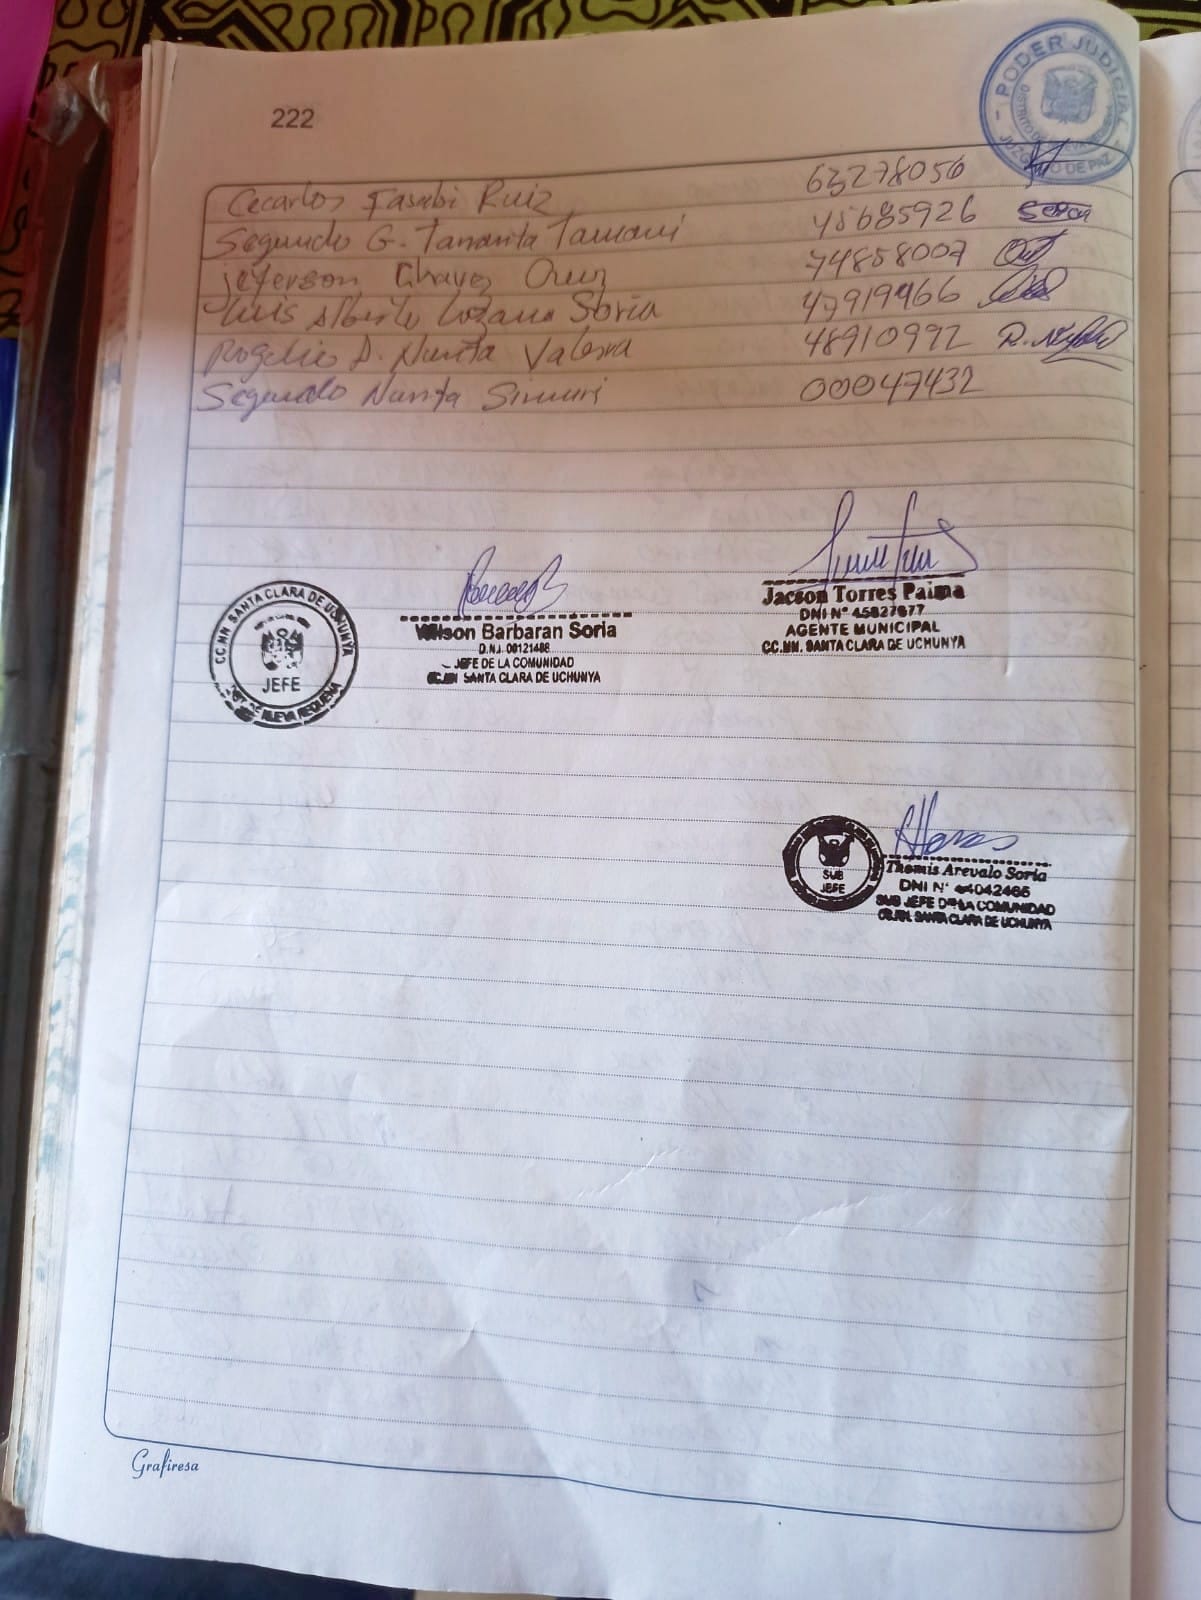 222
PODER JUDICIAL
JUZGADO DE PAZ
Cecarlos Fasabi Ruiz 63278056
Segundo G. Tananta Tamani 45685926
Jeferson Chavez Cruz 74858007
Luis Alberto Lozano Soria 47919466
Rogelio D. Nunta Valera 48910992 R. Nunta
Segundo Nunta Sinuiri 00047432
CC.NN SANTA CLARA DE UCHUNYA
JEFE
NUEVA REQUENA
Wilson Barbaran Soria
D.N.I. 00121488
JEFE DE LA COMUNIDAD
CC.NN SANTA CLARA DE UCHUNYA
Jacson Torres Paima
DNI N° 45827677
AGENTE MUNICIPAL
CC.NN. SANTA CLARA DE UCHUNYA
SUB
JEFE
Thomis Arevalo Soria
DNI N° 44042465
SUB JEFE DE LA COMUNIDAD
CC.NN. SANTA CLARA DE UCHUNYA
Grafiresa